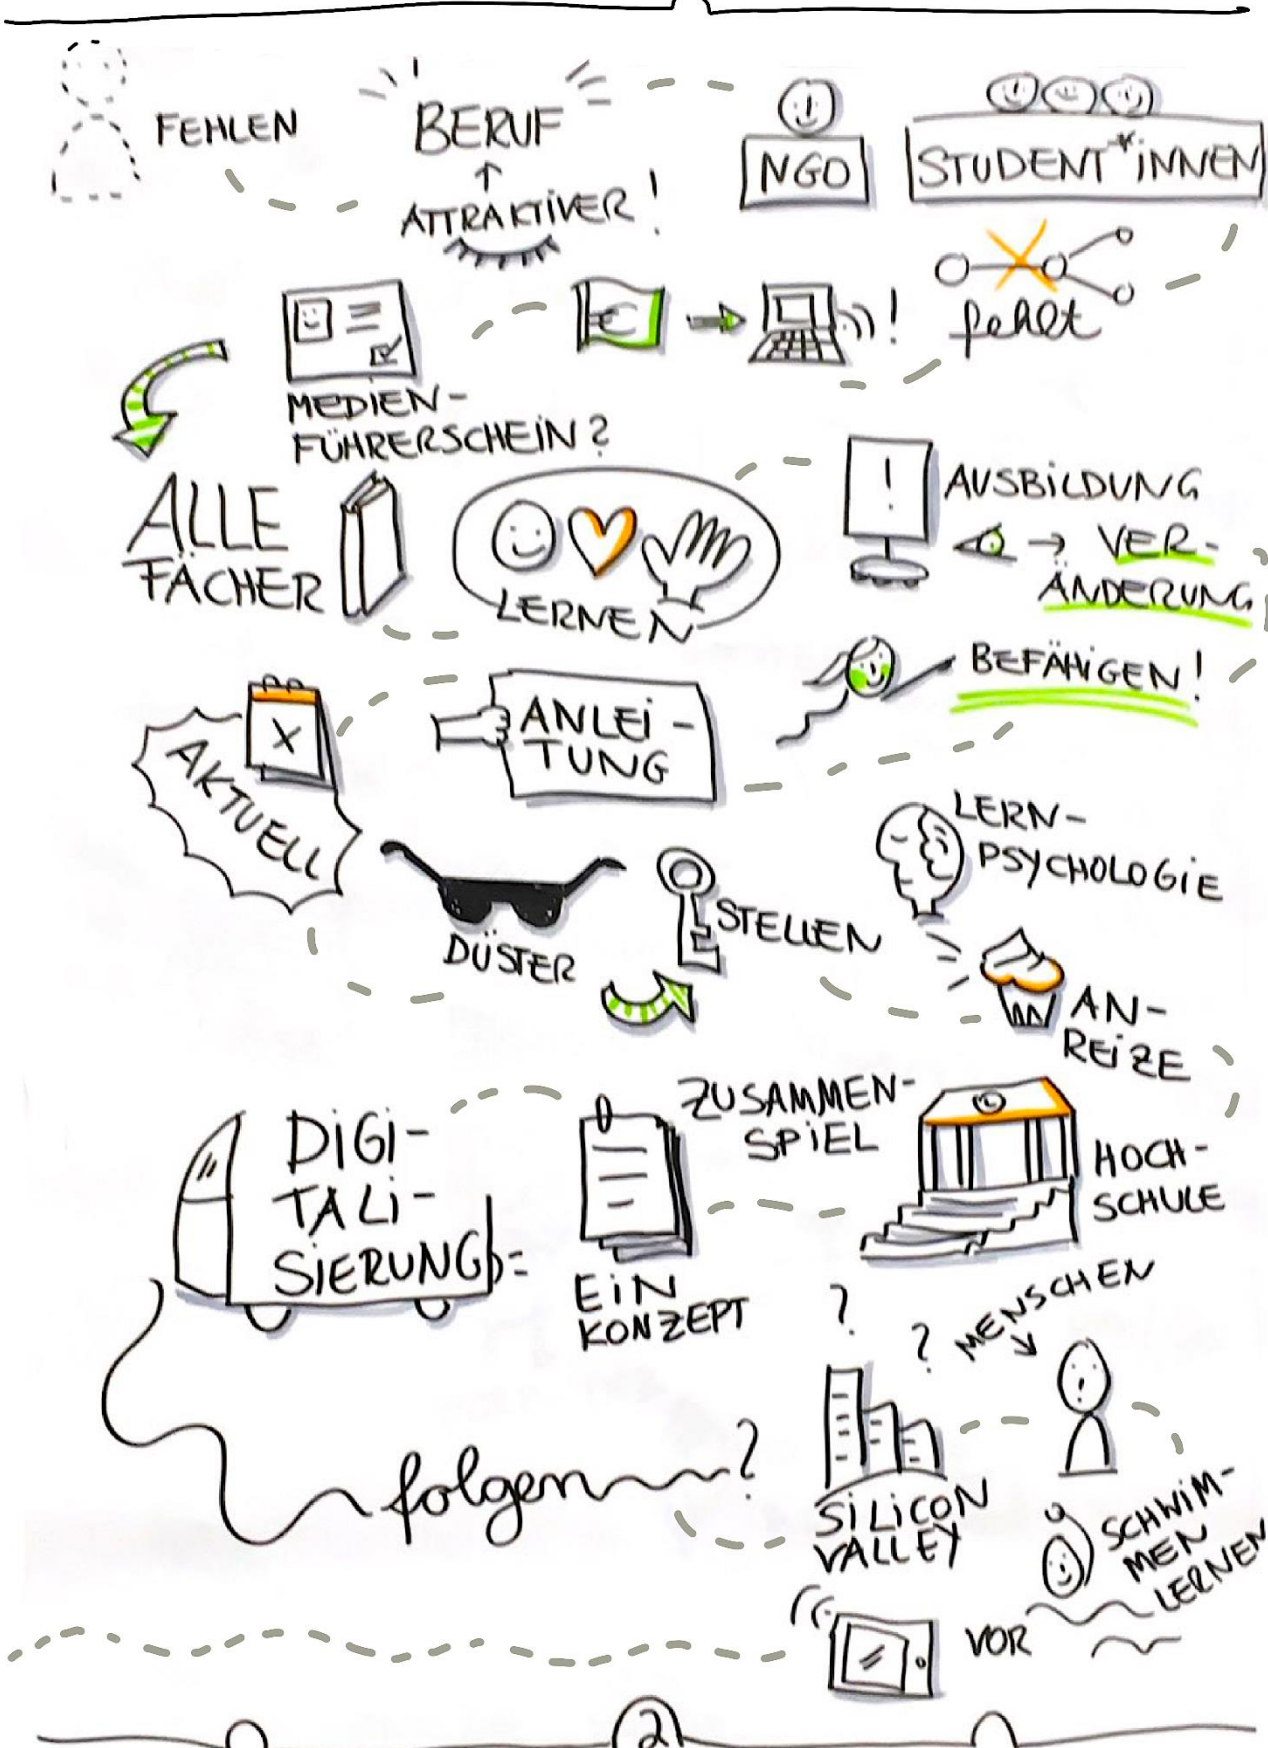 FEHLEN
BERUF
ATTRAKTIVER!
NGO
STUDENT*INNEN
fehlt
!
MEDIEN-
FÜHRERSCHEIN?
ALLE
FÄCHER
LERNEN
!
AUSBILDUNG
VER-
ÄNDERUNG
BEFÄHIGEN!
X
AKTUELL
ANLEI-
TUNG
LERN-
PSYCHOLOGIE
DÜSTER
STELLEN
AN-
REIZE
DIGI-
TALI-
SIERUNG=
EIN
KONZEPT
ZUSAMMEN-
SPIEL
HOCH-
SCHULE
?
?
MENSCHEN
folgen ?
SILICON
VALLEY
SCHWIM-
MEN
LERNEN
VOR
2